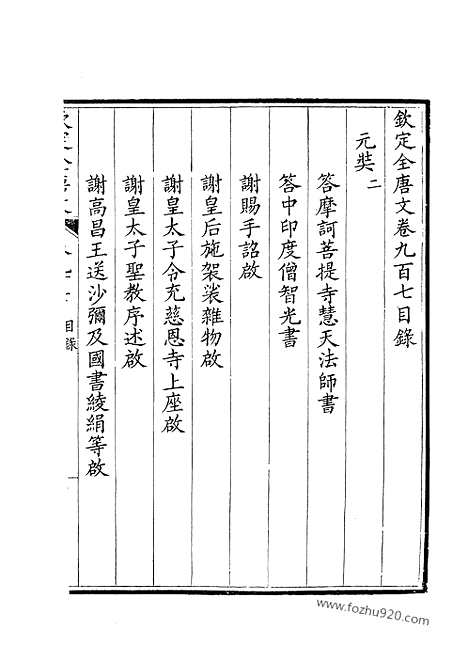 欽定全唐文卷九百七目錄
元奘二
答摩訶菩提寺慧天法師書
答中印度僧智光書
謝賜手詔啟
謝皇后施袈裟雜物啟
謝皇太子令充慈恩寺上座啟
謝皇太子聖教序述啟
謝高昌王送沙彌及國書綾絹等啟
目錄
www.fozhu920.com